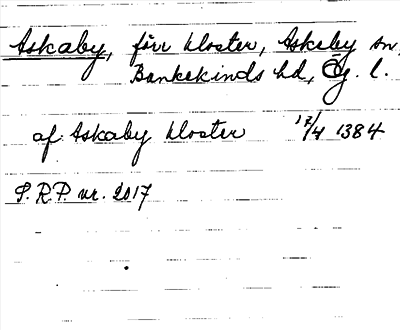 Askaby, förr kloster, Askeby sn,
Bankekinds hd, Ög. l.
af Askaby kloster 17/4 1384
S.R.P. nr. 2017